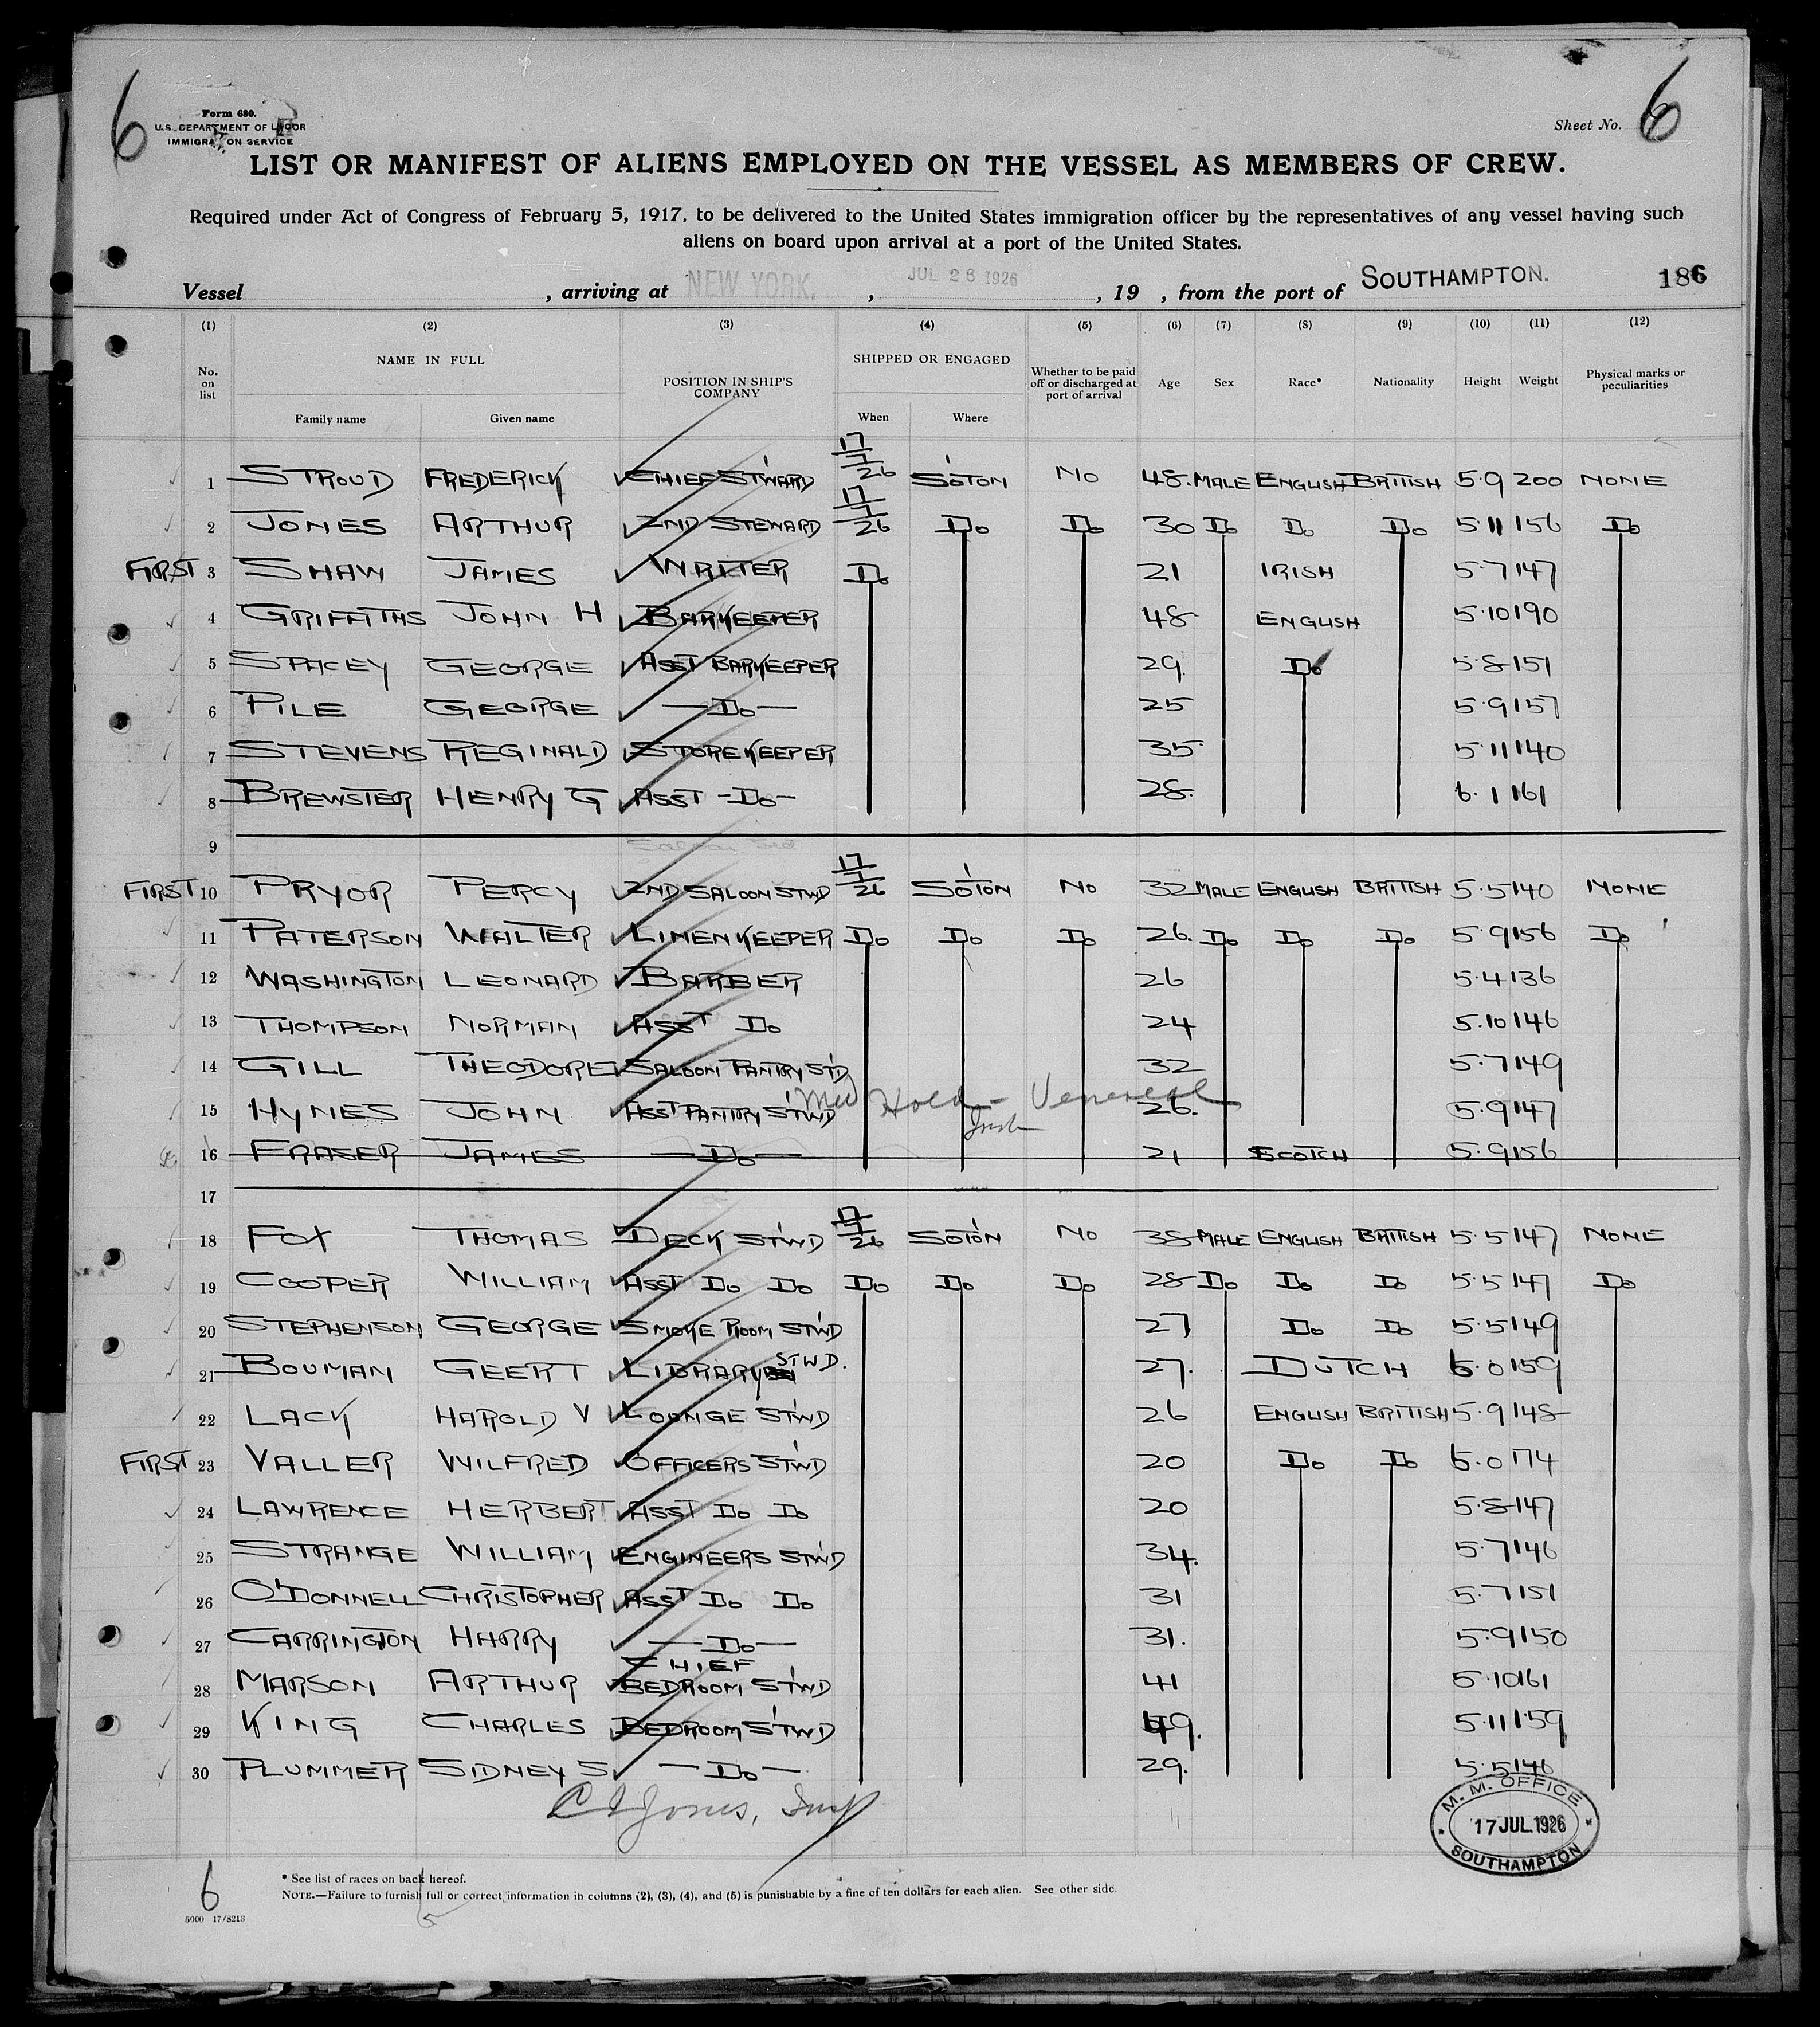 6
Form 680.
U.S. DEPARTMENT OF LABOR
IMMIGRATION SERVICE
Sheet No. 6
LIST OR MANIFEST OF ALIENS EMPLOYED ON THE VESSEL AS MEMBERS OF CREW.
Required under Act of Congress of February 5, 1917, to be delivered to the United States immigration officer by the representatives of any vessel having such
aliens on board upon arrival at a port of the United States.
Vessel , arriving at NEW YORK. , JUL 26 1926 , 19 , from the port of SOUTHAMPTON. 186
(1) (2) (3) (4) (5) (6) (7) (8) (9) (10) (11) (12)
No. on list NAME IN FULL POSITION IN SHIP'S COMPANY SHIPPED OR ENGAGED Whether to be paid off or discharged at port of arrival Age Sex Race* Nationality Height Weight Physical marks or peculiarities
Family name Given name When Where
1 STROUD FREDERICK CHIEF ST'WARD 17/7/26 SO'TON NO 48. MALE ENGLISH BRITISH 5.9 200 NONE
2 JONES ARTHUR 2ND STEWARD 17/7/26 DO DO 30 DO DO DO 5.11 156 DO
FIRST 3 SHAW JAMES WRITER DO 21 IRISH 5.7 147
4 GRIFFITHS JOHN H BARKEEPER 48 ENGLISH 5.10 190
5 STACEY GEORGE ASST BARKEEPER 29. DO 5.8 151
6 PILE GEORGE —DO— 25 5.9 157
7 STEVENS REGINALD STOREKEEPER 35 5.11 140
8 BREWSTER HENRY G ASST -DO- 28. 6.1 161
9
FIRST 10 PRYOR PERCY 2ND SALOON STWD 17/7/26 SO'TON NO 32 MALE ENGLISH BRITISH 5.5 140 NONE
11 PATERSON WALTER LINENKEEPER DO DO DO 26. DO DO DO 5.9 156 DO
12 WASHINGTON LEONARD BARBER 26 5.4 136
13 THOMPSON NORMAN ASST DO 24 5.10 146
14 GILL THEODORE SALOON PANTRY ST'D 32 5.7 149
15 HYNES JOHN ASST PANTRY ST'WD Med Hold - Venereal 26. 5.9 147
16 FRASER JAMES —DO— 21 SCOTCH 5.9 156
17
18 FOX THOMAS DECK ST'WD 17/7/26 SO'TON NO 38 MALE ENGLISH BRITISH 5.5 147 NONE
19 COOPER WILLIAM ASST DO DO DO DO DO 28 DO DO DO 5.5 147 DO
20 STEPHENSON GEORGE SMOKE ROOM ST'WD 27 DO DO 5.5 149
21 BOUMAN GEERT LIBRARY STWD. 27. DUTCH 6.0 159
22 LACK HAROLD V LOUNGE ST'WD 26 ENGLISH BRITISH 5.9 148
FIRST 23 VALLER WILFRED OFFICERS ST'WD 20 DO DO 6.0 174
24 LAWRENCE HERBERT ASST DO DO 20 5.8 147
25 STRANGE WILLIAM ENGINEERS ST'WD 34. 5.7 146
26 O'DONNELL CHRISTOPHER ASST DO DO 31 5.7 151
27 CARRINGTON HARRY —DO— 31. 5.9 150
28 MARSON ARTHUR CHIEF BEDROOM ST'WD 41 5.10 161
29 KING CHARLES BEDROOM ST'WD 49. 5.11 159
30 PLUMMER SIDNEY S. —DO— 29. 5.5 146
C I Jones, Insp
M. M. OFFICE
17 JUL 1926
SOUTHAMPTON
* See list of races on back hereof.
NOTE.—Failure to furnish full or correct information in columns (2), (3), (4), and (5) is punishable by a fine of ten dollars for each alien. See other side.
6
5000 17/8213